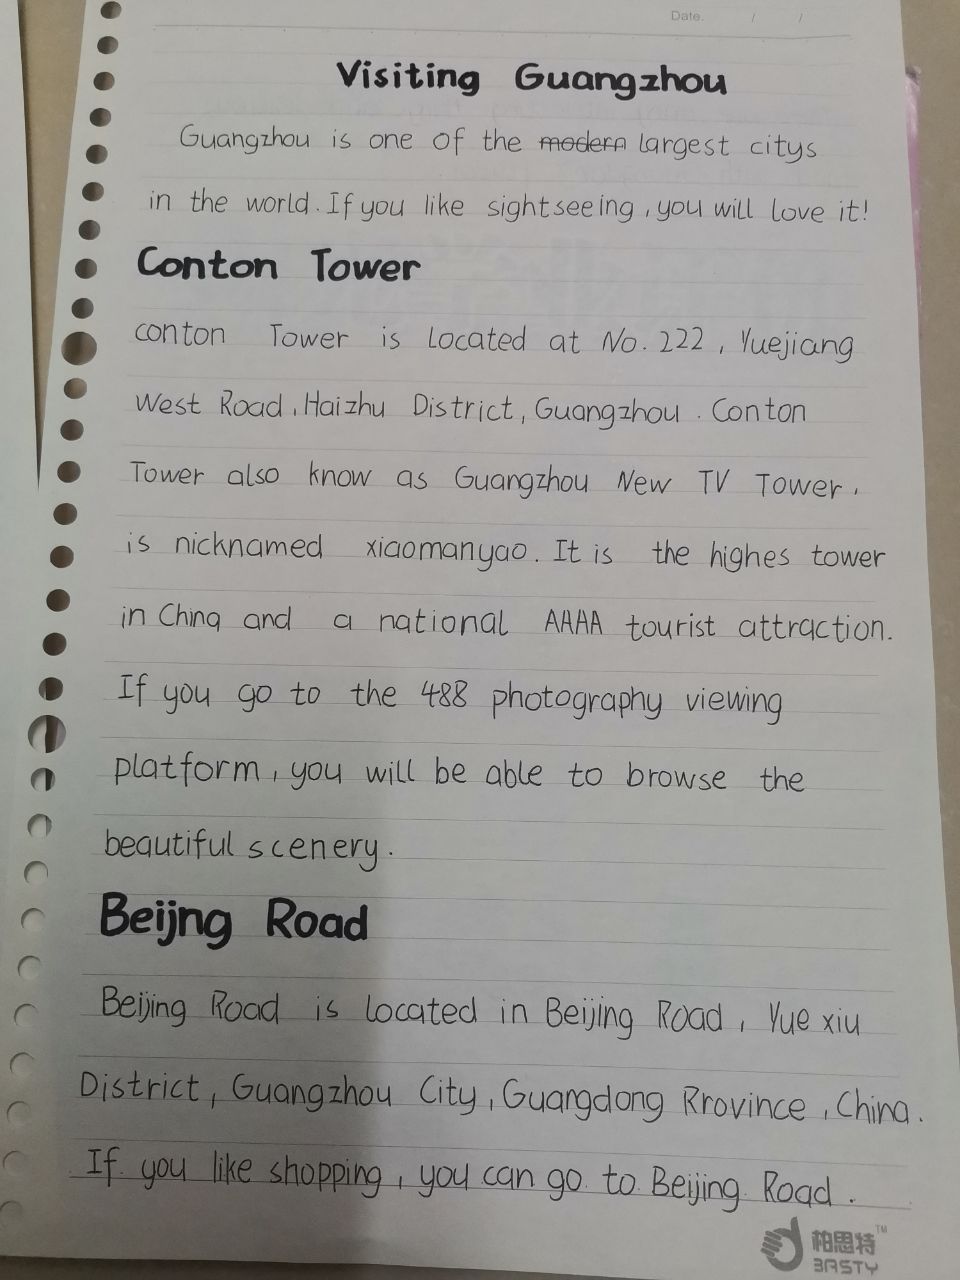 Date. / /
Visiting Guangzhou
Guangzhou is one of the modern largest citys
in the world. If you like sightseeing, you will love it!
Conton Tower
conton Tower is located at No. 222, Yuejiang
West Road, Haizhu District, Guangzhou. Conton
Tower also know as Guangzhou New TV Tower,
is nicknamed xiaomanyao. It is the highes tower
in China and a national AAAA tourist attraction.
If you go to the 488 photography viewing
platform, you will be able to browse the
beautiful scenery.
Beijng Road
Beijing Road is located in Beijing Road, Yue xiu
District, Guangzhou City, Guangdong Rrovince, China.
If you like shopping, you can go to Beijing Road.
柏思特™
BASTY